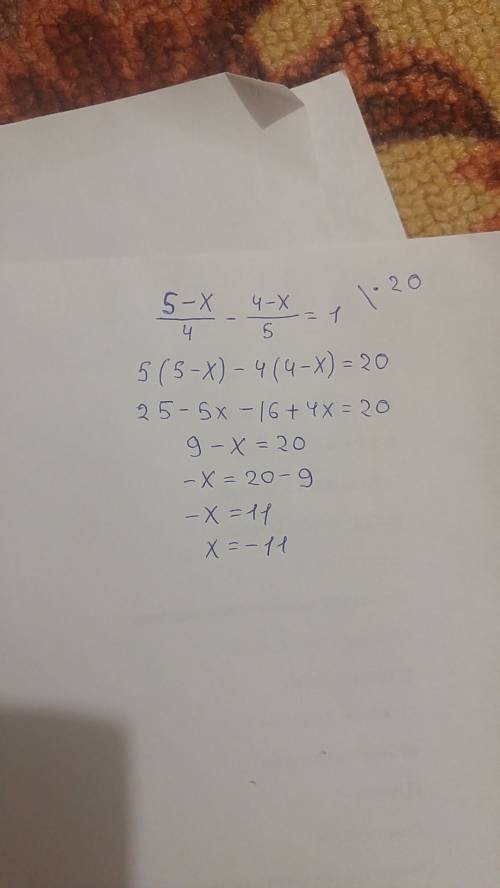 (5-x)/4 - (4-x)/5 = 1 \ · 20
5(5-x)-4(4-x)=20
25-5x-16+4x=20
9-x=20
-x=20-9
-x=11
x=-11